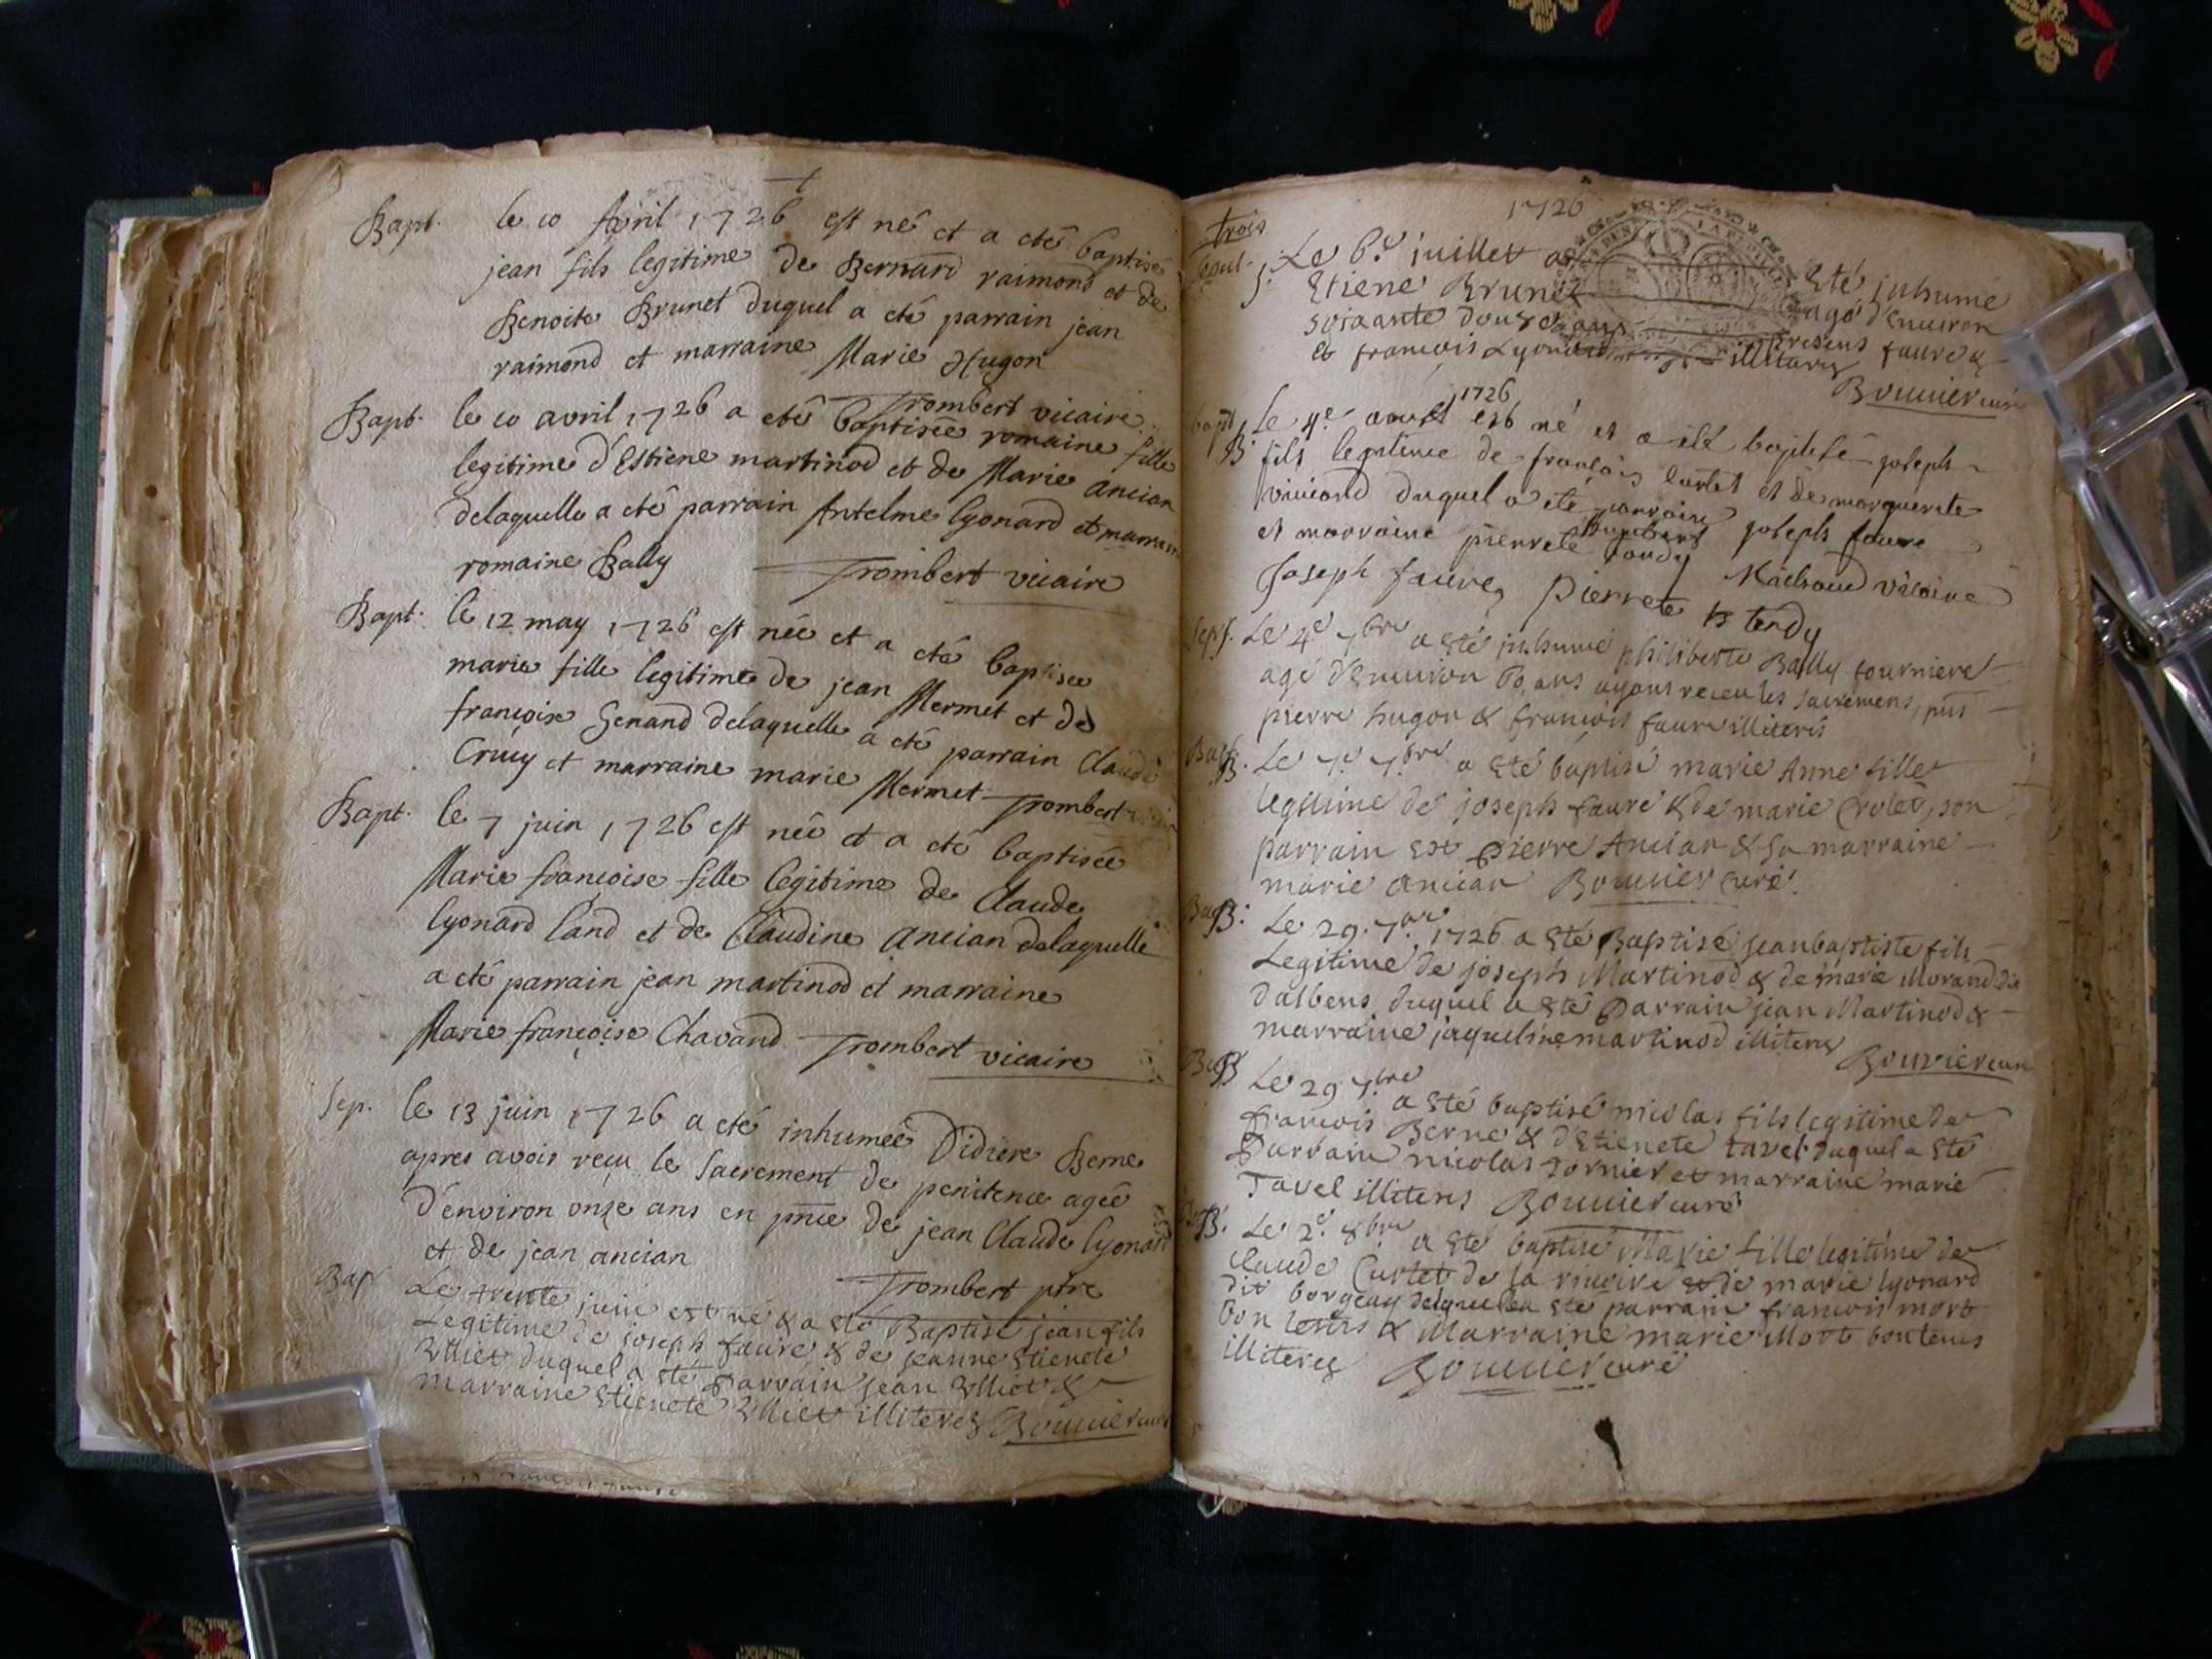 Bapt. le 10 Avril 1726 est né et a eté baptisé
jean fils legitime de Bernard raimond et de
Benoite Brunet duquel a eté parrain jean
raimond et marraine Marie Hugon
Trombert vicaire
Bapt. le 10 avril 1726 a eté baptisée romaine fille
legitime d'Estiene martinod et de Marie ancian
delaquelle a eté parrain Antelme lyonard et marraine
romaine Bally Trombert vicaire
Bapt. le 12 may 1726 est née et a eté baptisée
marie fille legitime de jean Mermet et de
françoise Genand delaquelle a eté parrain Claude
Cruiy et marraine marie Mermet Trombert
Bapt. le 7 juin 1726 est née et a eté baptisée
Marie françoise fille legitime de Claude
lyonard land et de Claudine ancian delaquelle
a eté parrain jean martinod et marraine
Marie françoise Chavand Trombert vicaire
Sep. le 13 juin 1726 a eté inhumée Didiere Berne
apres avoir reçu le Sacrement de penitence agée
d'environ onze ans en pnce de jean Claude lyonard
et de jean ancian
Trombert ptre
Bap Le trente juin est né & a esté Baptisé jean fils
Legitime de joseph faure & de jeanne Etienete
Ulliet duquel a esté parrain jean Ulliet &
marraine Etienete Ulliet illiteres Bouvier curé
1726
trois
Le 6e juillet a esté inhumé
Etiene Brunet agé d'environ
soixante douze ans presens faure &
& francois Lyonard illiteres
Bouvier curé
1726
bapt. Le 4e aoust est né et a été baptisé joseph
B fils legitime de françois curtet et de marguerite
viviand duquel a été parrain joseph faure
et marraine pierrete tardy
Michaud vicaire
Joseph faure, pierrete tardy
Sep. Le 4e 7bre a esté inhumé philiberte Bally fourniere
agé d'environ 60 ans ayant receu les sacremens, pnts
pierre hugon & francois faure illiteres
Bap. B. Le 7e 7bre a esté baptisé marie Anne fille
legitime de joseph faure & de marie Crolet, son
parrain est pierre Ancian & sa marraine
marie ancian Bouvier curé
Bap B. Le 29. 7bre 1726 a esté Baptisé jean baptiste fils
Legitime de joseph Martinod & de marie Morand die
dalbens duquel a esté Parrain jean Martinod &
marraine jaqueline martinod illiteres
Bouvier curé
Bap B Le 29 7bre a esté baptisé nicolas fils legitime de
francois Berne & d'Etienete tavel duquel a esté
Parrain nicolas fornier et marraine marie
Tavel illiteres Bouvier curé
B. Le 2e 8bre a esté baptisé Marie fille legitime de
Claude Curtet de la riuoire & de marie lyonard
dit borgeay delaquelle a esté parrain francois mort
bon tems & Marraine marie Mort bontems
illiteres Bouvier curé